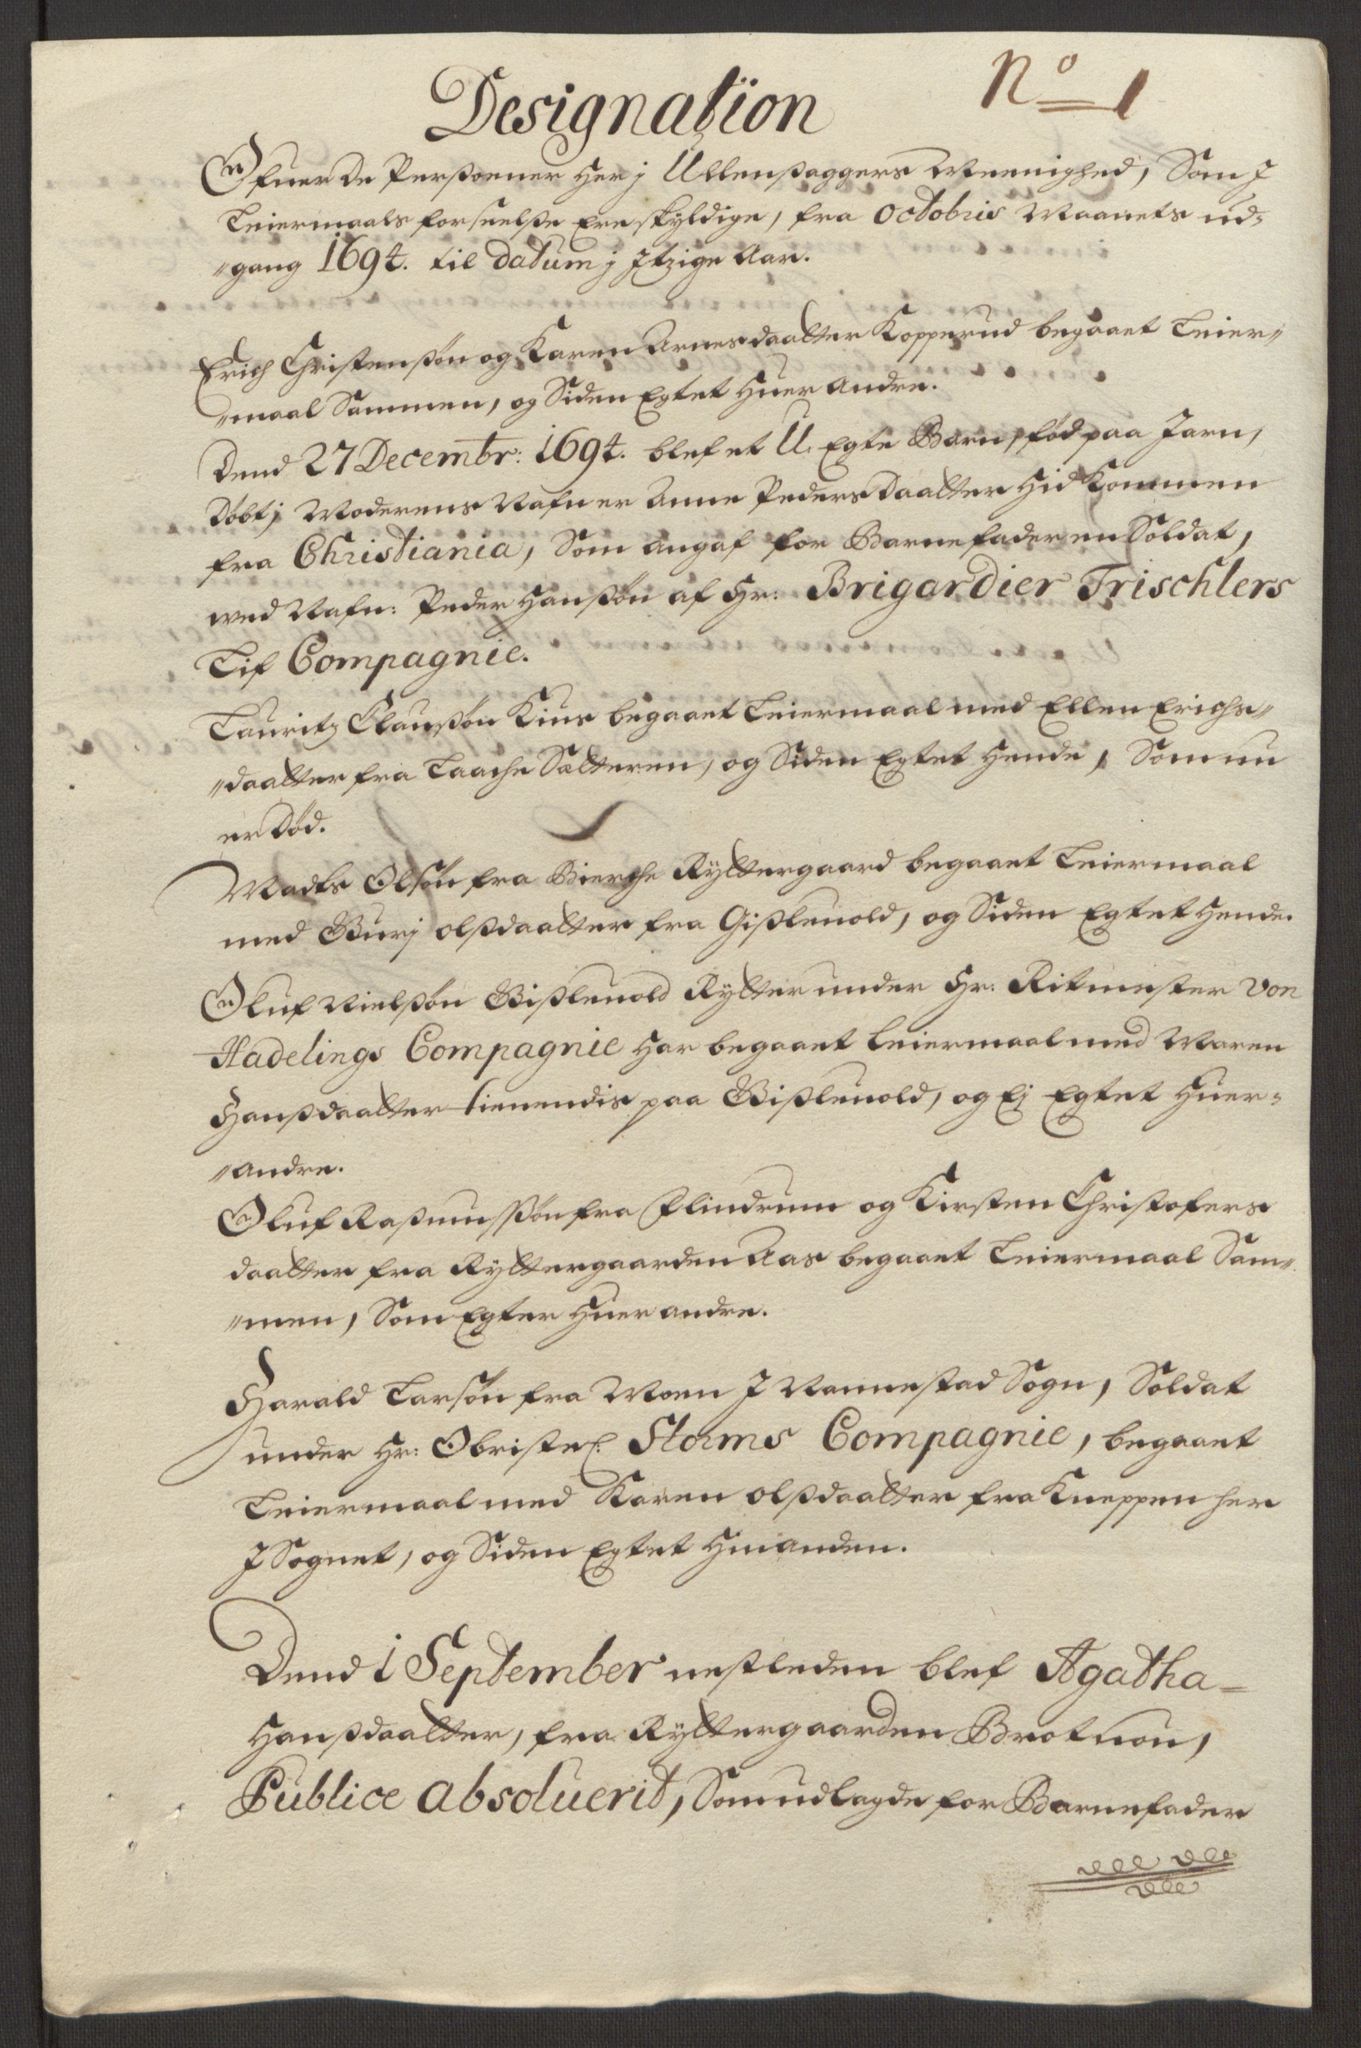 No 1
Designation
Ofuer De Perßoener Her j Ullenßaggers Meenighed, Som J
Leiermaals forseelße Ere skyldige, fra Octobris Maanets ud=
"gang 1694. til datum j Jtzige Aar.
Erich Christenßøn og Karen Arnesdaatter Kopperud begaaet Leier"
"maal Sammen, og Siden Egtet Huer Andre.
Dend 27 Decembr: 1694. blef et U. Egte Barn, fød paa Jarn,
Døbt; Moderens Nafn er Anne Pedersdaatter Hid Kommen
fra Christiania, Som angaf for Barnefader en Soldat,
wed Nafn: Peder Hanßøn af Hr: Brigardier Trischlers
Lif Compagnie.
Lauritz Claußøn Kius begaaet Leiermaal med Ellen Erichs"
"daatter fra Laache Sætteren, og Siden Egtet Hende, Som nu
er Død.
Madts Olsøn fra Bierche Ryttergaard begaaet Leiermaal
med Gurj olßdaatter fra Gißleuold, og Siden Egtet Hende.
Oluf Nielßøn Gißleuold Rytter under Hr: Ritmester Von
Hadelings Compagnie Har begaaet Leiermaal med Maren
Hanßdaatter tienendis paa Gißleuold, og Ej Egtet Huer=
"andre.
Oluf Raßmußøn fra Flindrum og Kirsten Christofers
daatter fra Ryttergaarden Aas begaaet Leiermaal Sam"
"men, Som Egter Huer andre.
Harald Larsøn fra Moen J Nannestad Sogn, Soldat
under Hr: Obriste Storms Compagnie, begaaet
Leiermaal med Karen olßdaatter fra Kneppen her
J Sognet, og Siden Egtet Hinanden.
Dend 1 September nestleden blef Agatha=
Hanßdaatter, fra Ryttergaarden Brotnou,
Publice absoluerit, Som udlagde for Barnefader